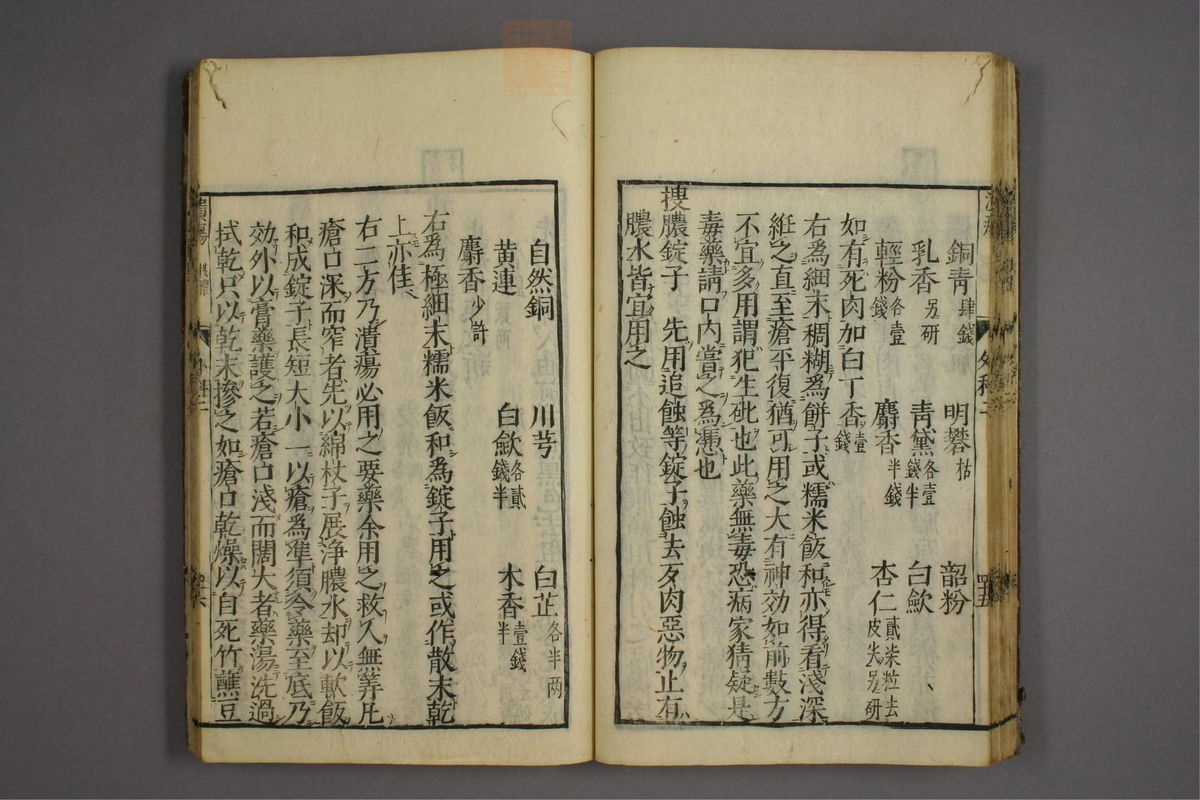 銅青肆錢 明礬枯 韶粉
乳香另研 青黛各壹錢半 白歛
輕粉各壹錢 麝香半錢 杏仁貳柒粒去皮尖另研
如有死肉加白丁香壹錢
右爲細末稠糊爲餅子或糯米飯和亦得看淺深
紝之直至瘡平復猶可用之大有神効如前數方
不宜多用謂犯生砒也此藥無毒恐病家猜疑是
毒藥請口内嘗之爲憑也
摟膿錠子 先用追蝕等錠子蝕去歹肉惡物止有
膿水皆宜用之
自然銅 川芎 白芷各半两
黄連 白歛各貳錢半 木香壹錢半
麝香少許
右爲極細末糯米飯和爲錠子用之或作散末乾
上亦佳
右二方乃潰瘍必用之要藥余用之救人無筭凡
瘡口深而窄者先以綿杖子展浄膿水却以軟飯
和成錠子長短大小一以瘡爲準須令藥至底乃
効外以膏藥護之若瘡口淺而闊大者藥湯洗過
拭乾只以乾末摻之如瘡口乾燥以自死竹蘸豆